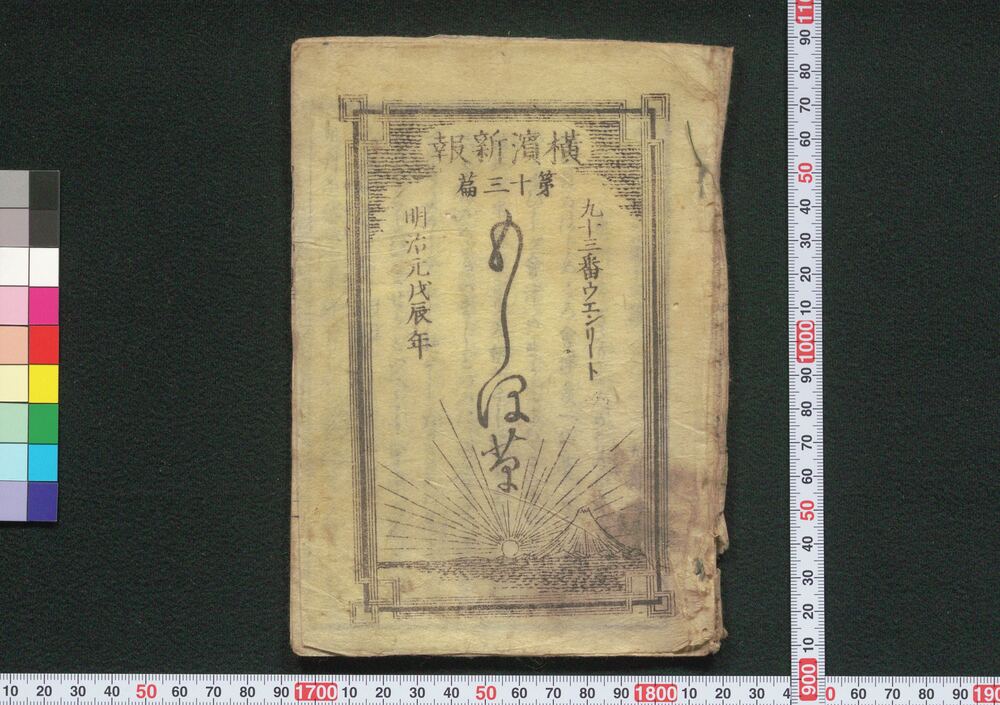 横濱新報
第十三篇
九十三番ウエンリート
もしほ草
明治元戊辰年
10 20 30 40 50 60 70 80 90 1700 10 20 30 40 50 60 70 80 90 1800 10 20 30 4
0 60 70 80 90 190
110
90
80
70
60
50
40
30
20
10
1000
90
80
70
60
50
40
30
20
10
900